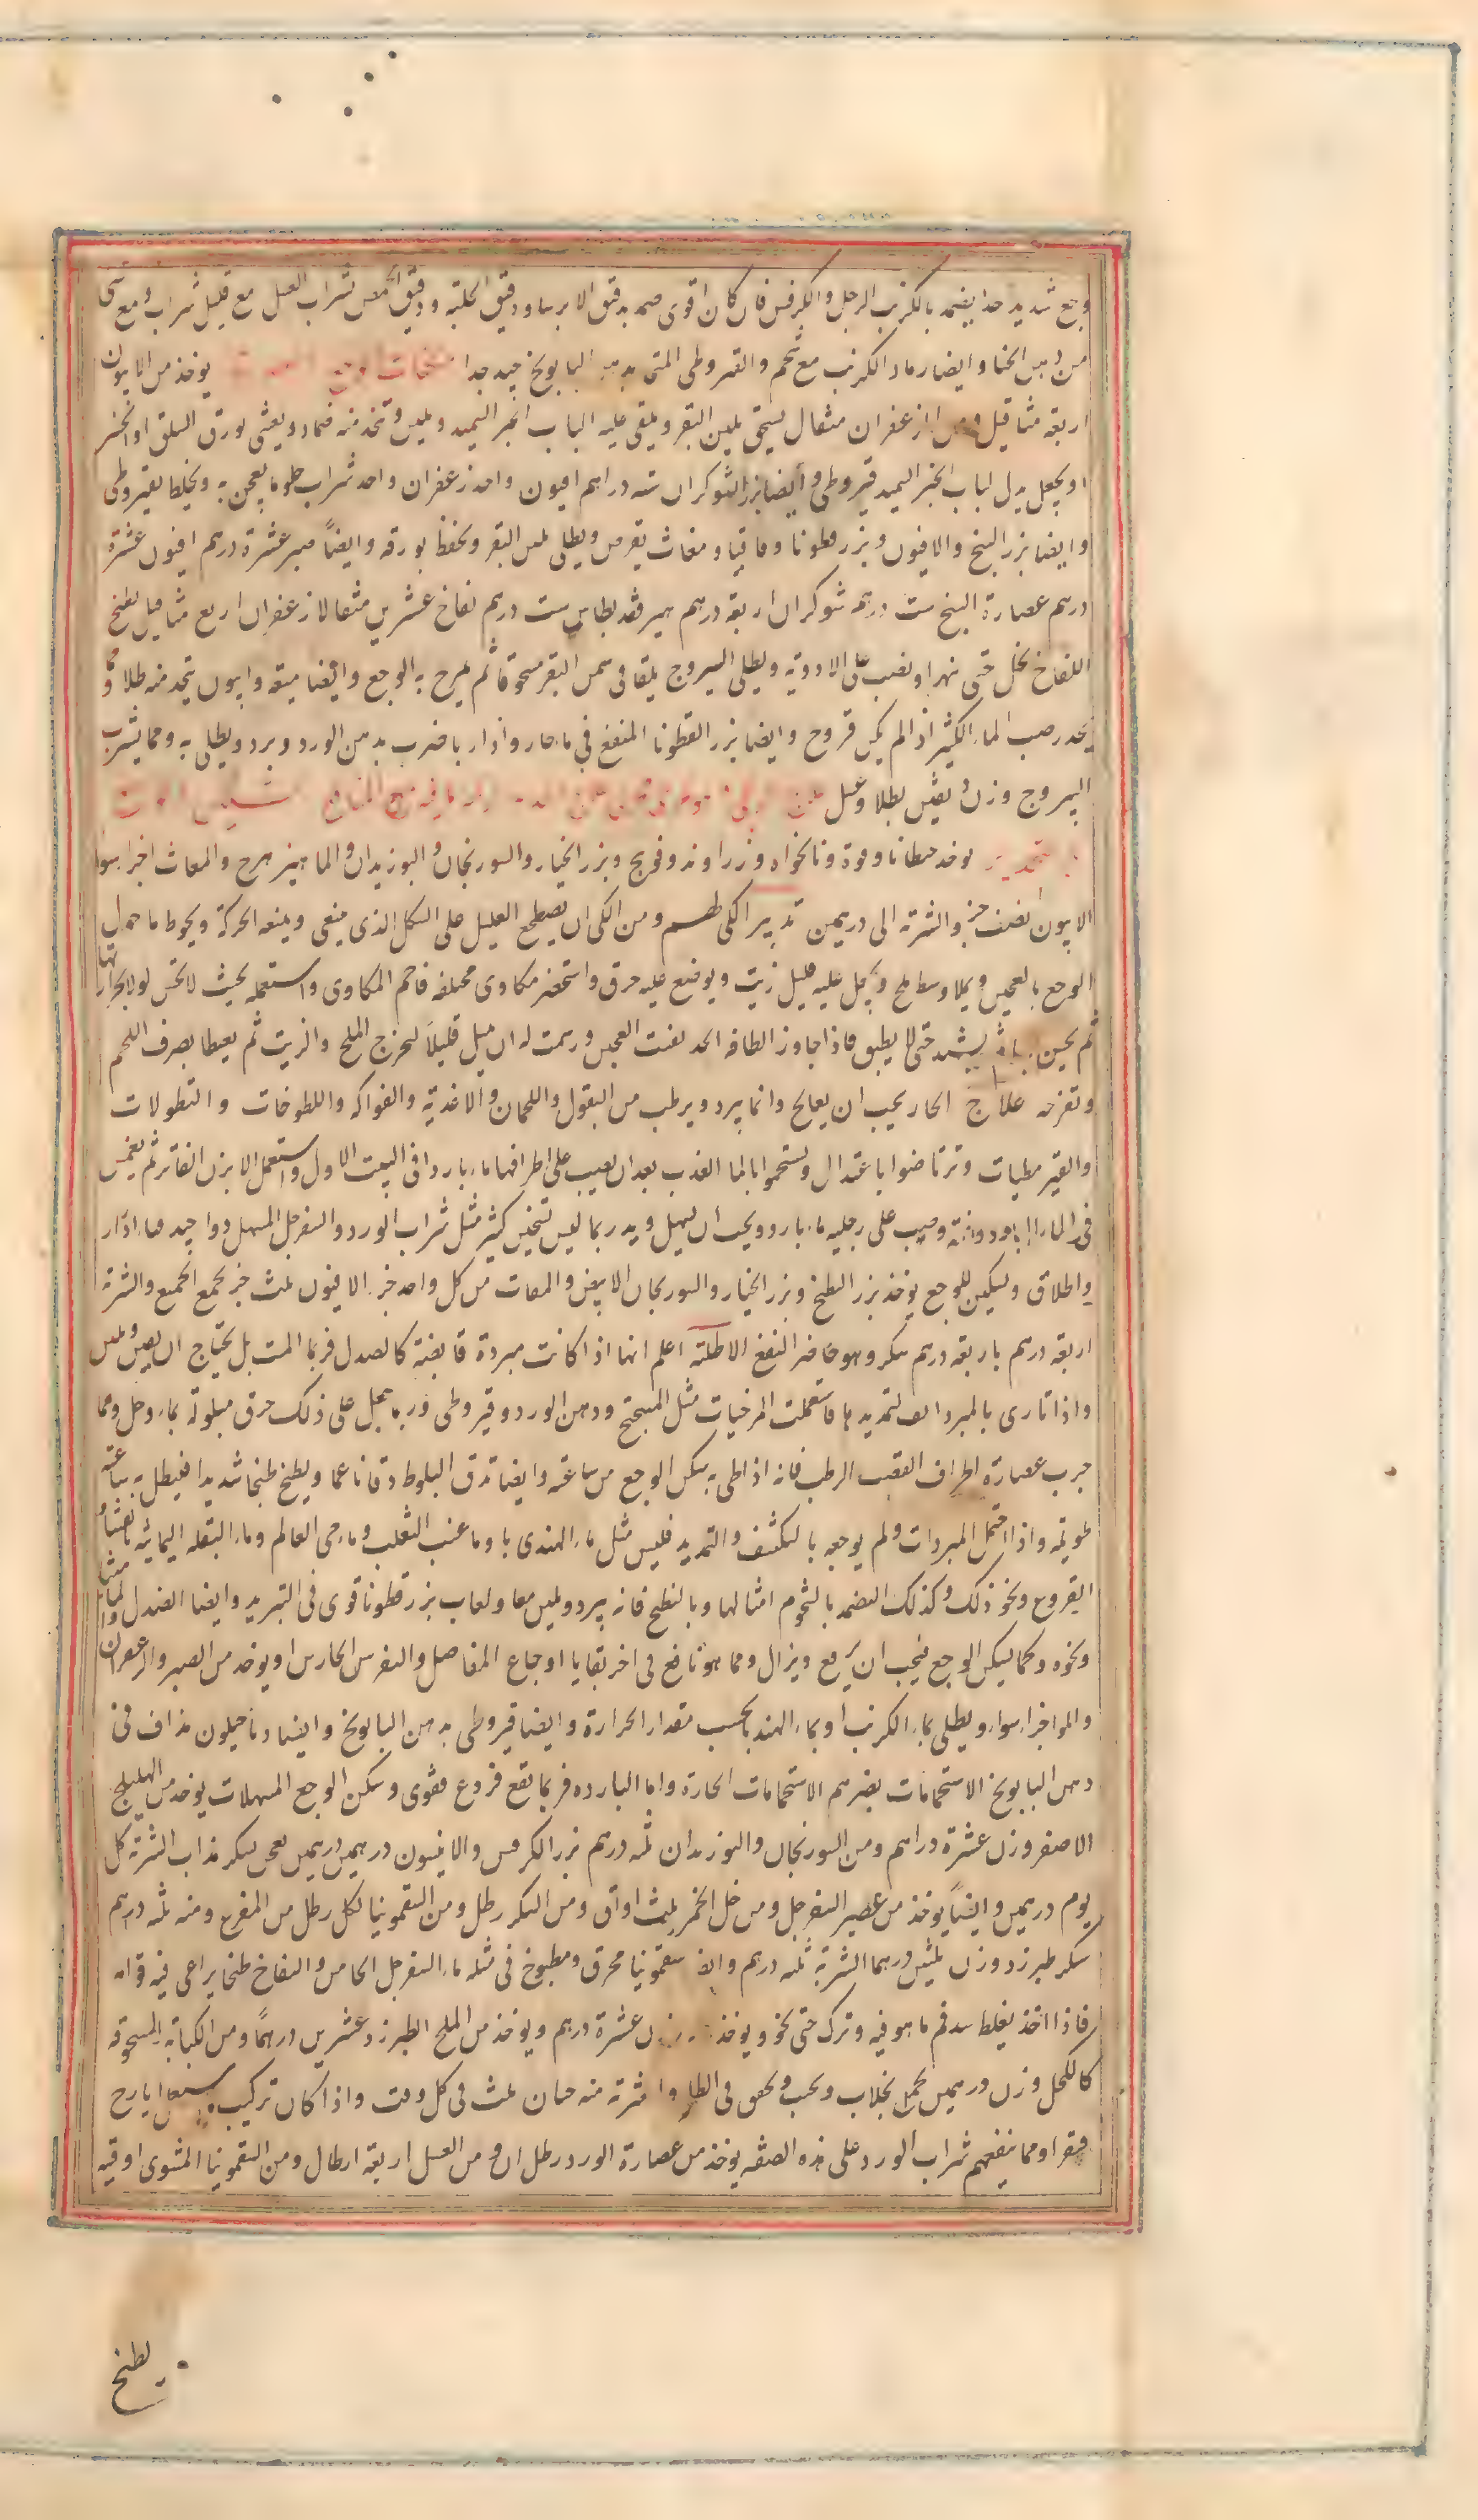 وجع شديد جدا يضمد بالكرنب الرجل والكرفس فان كان اقوى ضمد بدقيق الايرسا ودقيق الحلبة ودقيق الحمص بشراب العسل مع قليل شراب ومع شى
من دهن الحنا وايضا رماد الكرنب مع شحم والقيروطى المتخ بدهن البابونج جيد جدا يوخذ من الافيون
اربعة مثاقيل ومن الزعفران مثقال يسحق بلبن البقر ويلقى عليه لباب الخبز السميد ويلين وتتخذ منه ضماد ويغشى بورق السلق او الخس
او يجعل بدل لباب الخبز السميد قيروطى وايضا بزر الشوكران ستة دراهم افيون واحد زعفران واحد شراب حلو ما يعجن به ويخلط بقيروطى
وايضا بزر البنج والافيون وبزر قطونا واقاقيا ومغاث يقرص ويطلى بلبن البقر ويحفظ بورقه وايضاً صبر عشرة درهم افيون عشرة
درهم عصارة البنج ست درهم شوكران اربعة درهم هيوفقسطيداس ست درهم لفاح عشرين مثقالا زعفران اربع مثاقيل يطبخ
اللفاح بخل حتى يتهرا ويصب على الادوية ويطلى اليبروج يلقا فى سمن البقر مسحوقا ثم يمرخ به الوجع وايضا ميعه وافيون يتخذ منه طلا ومما
يخدر صب الماء الكثير اذا لم يكن قروح وايضا بزر القطونا المنقع فى ماء حار واذا ربا ضرب بدهن الورد وبرد ويطلى به ومما يشرب
اليبروج وزن بطلا وعسل
يوخذ جنطانا وفوة ونانخواه وزراوند وفوبج وبزر الخيار والسورنجان والبوزيدان والماهيزهرج والمغاث اجزا سوا
الافيون نصف جز والشربة الى درهمين تدبير الكى لهم ومن الكى ان يضطجع العليل على الشكل الذى ينبغى ويمنعه الحركة ويحوط ما حول
الوجع بالعجين ويملا وسطه ملح ويجعل عليه قليل زيت ويوضع عليه خرق واستحضر مكاوى مختلفه فاحم المكاوى واستعمله بحيث لا تحس اولا بحرارتها
ثم يحس يشتد حتى لا يطيق فاذا جاوز الطاقه الحد رفعت العجين ورسمت له ان يميل قليلاً ليخرج الملح والزيت ثم يعطا بصرف اللحم
وتفرحه علاج الحار يجب ان يعالج وانما يبرد ويرطب من البقول واللحمان والاغذية والفواكه واللطوخات والنطولات
والقيروطيات وترتاضوا باعتدال ويستحموا بالما العذب بعد ان يصب على اطرافها ماء باردا فى البيت الاول واستعمل الابزن الفاتر ثم يغمس
فى الماء البارد دفعة وصب على رجليه ماء بارد ويجب ان يسهل ويدر بما ليس تسخين كثير مثل شراب الورد والسفرجل المسهل دوا جيد ادرار
واطلاق وتسكين للوجع يوخذ بزر البطيخ وبزر الخيار والسورنجان الابيض والمغاث من كل واحد جز الافيون ثلث جز يجمع الجميع والشربة
اربعة درهم باربعة درهم سكر وهو حاضر النفع الاطلية اعلم انها اذا كانت مبردة قابضة كالصندل فربما المت بل يحتاج ان يبرد ويلين
واذا تاذى بالمبردات لتمديدها فاستعملت المرخيات مثل الميبختج ودهن الورد وقيروطى وربما جعل على ذلك خرق مبلولة بماء وخل ومما
جرب عصارة اطراف القصب الرطب فانه اذا طلى به سكن الوجع من ساعته وايضا تدق البلوط دقا ناعما ويطبخ طبخا شديدا فيطل به ساعة
طويلة واذا احتمل المبردات ولم يوجعه بالتكثيف والتمديد فليس مثل ماء الهندى با وما عنب الثعلب وماء حى العالم وماء البقله اليمانية
القروع ونحو ذلك وكذلك التضمد بالشحوم امثالها وبالبطيخ فانه يبرد ويلين معا ولعاب بزر قطونا قوى فى التبريد وايضا الصندل والماميثا
ونحوه وكلما يسكن الوجع فيجب ان يرفع ويزال ومما هو نافع فى اخر بقايا اوجاع المفاصل والنقرس الحارس ان يوخذ من الصبر والزعفران
والمر اجزاء سواء ويطلى بماء الكرنب او بماء الهندبا بحسب مقدار الحرارة وايضا قيروطى بدهن البابونج وايضا دياخيلون مذاف فى
دهن البابونج الاستحمامات يضرهم الاستحمامات الحارة واما البارده فربما تقع فروع فقوى وسكن الوجع المسهلات يوخذ من الهليلج
الاصفر وزن عشرة دراهم ومن السورنجان والبوزيدان ثلثه درهم بزر الكرفس والانيسون درهمين درهمين يعجن بسكر مذاب الشربة كل
يوم درهمين وايضاً يوخذ من عصير السفرجل ومن خل الخمر ثلث اواق ومن السكر رطل ومن السقمونيا لكل رطل من المفرغ ومنه ثلثه درهم
سكر طبرزد وزن ثلثين درهما الشربة ثلثه درهم وايضا سقمونيا محرق ومطبوخ فى مثله ماء السفرجل الحامض والتفاح طبخا يراعى فيه قوامه
فاذا اخذ يغلظ سد فم ما هو فيه وترك حتى يخثر ويوخذ وزن عشرة درهم ويوخذ من الملح الطبرزد عشرين درهماً ومن الكبابة المسحوقة
كالكحل وزن درهمين يعجن بجلاب ويحبب ويجفف فى الظل والشربة منه حبات ثلث فى كل وقت واذا كان تركيب استعمل ايارج
فيقرا ومما ينفعهم شراب الورد على هذه الصفه يوخذ من عصارة الورد رطلان ومن العسل اربعة ارطال ومن السقمونيا المشوى اوقيه
يطبخ